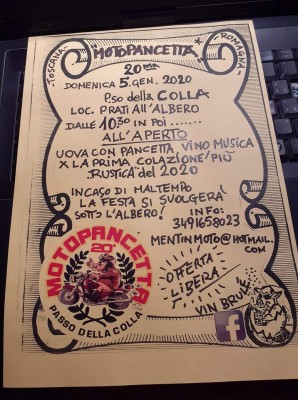 TOSCANA
ROMAGNA
MOTOPANCETTA
20ma
DOMENICA 5. GEN. 2020
P.so della COLLA
LOC. PRATI ALL'ALBERO
DALLE 10:30 IN POI .......
ALL'APERTO
UOVA CON PANCETTA, VINO MUSICA
X LA PRIMA COLAZIONE PIÙ
"RUSTICA" DEL 2020
IN CASO DI MALTEMPO
LA FESTA SI SVOLGERÀ
SOTTO L'ALBERO!
INFO:
3491658023
MENTINMOTO@HOTMAIL.
COM
OFFERTA
LIBERA
VIN BRULÉ
MOTOPANCETTA
20°
PASSO DELLA COLLA
f